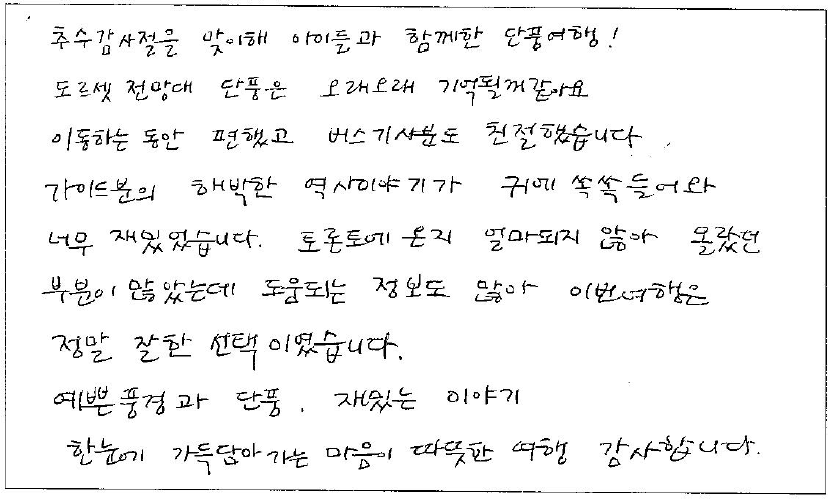 추수감사절을 맞이해 아이들과 함께한 단풍여행!
도르셋 전망대 단풍은 오래오래 기억될꺼같아요
이동하는 동안 편했고 버스기사분도 친절했습니다.
가이드분의 해박한 역사이야기가 귀에 쏙쏙 들어와
너무 재밌었습니다. 토론토에 온지 얼마되지 않아 몰랐던
부분이 많았는데 도움되는 정보도 많아 이번여행은
정말 잘한 선택이였습니다.
예쁜풍경과 단풍, 재밌는 이야기
한눈에 가득담아가는 마음이 따뜻한 여행 감사합니다.